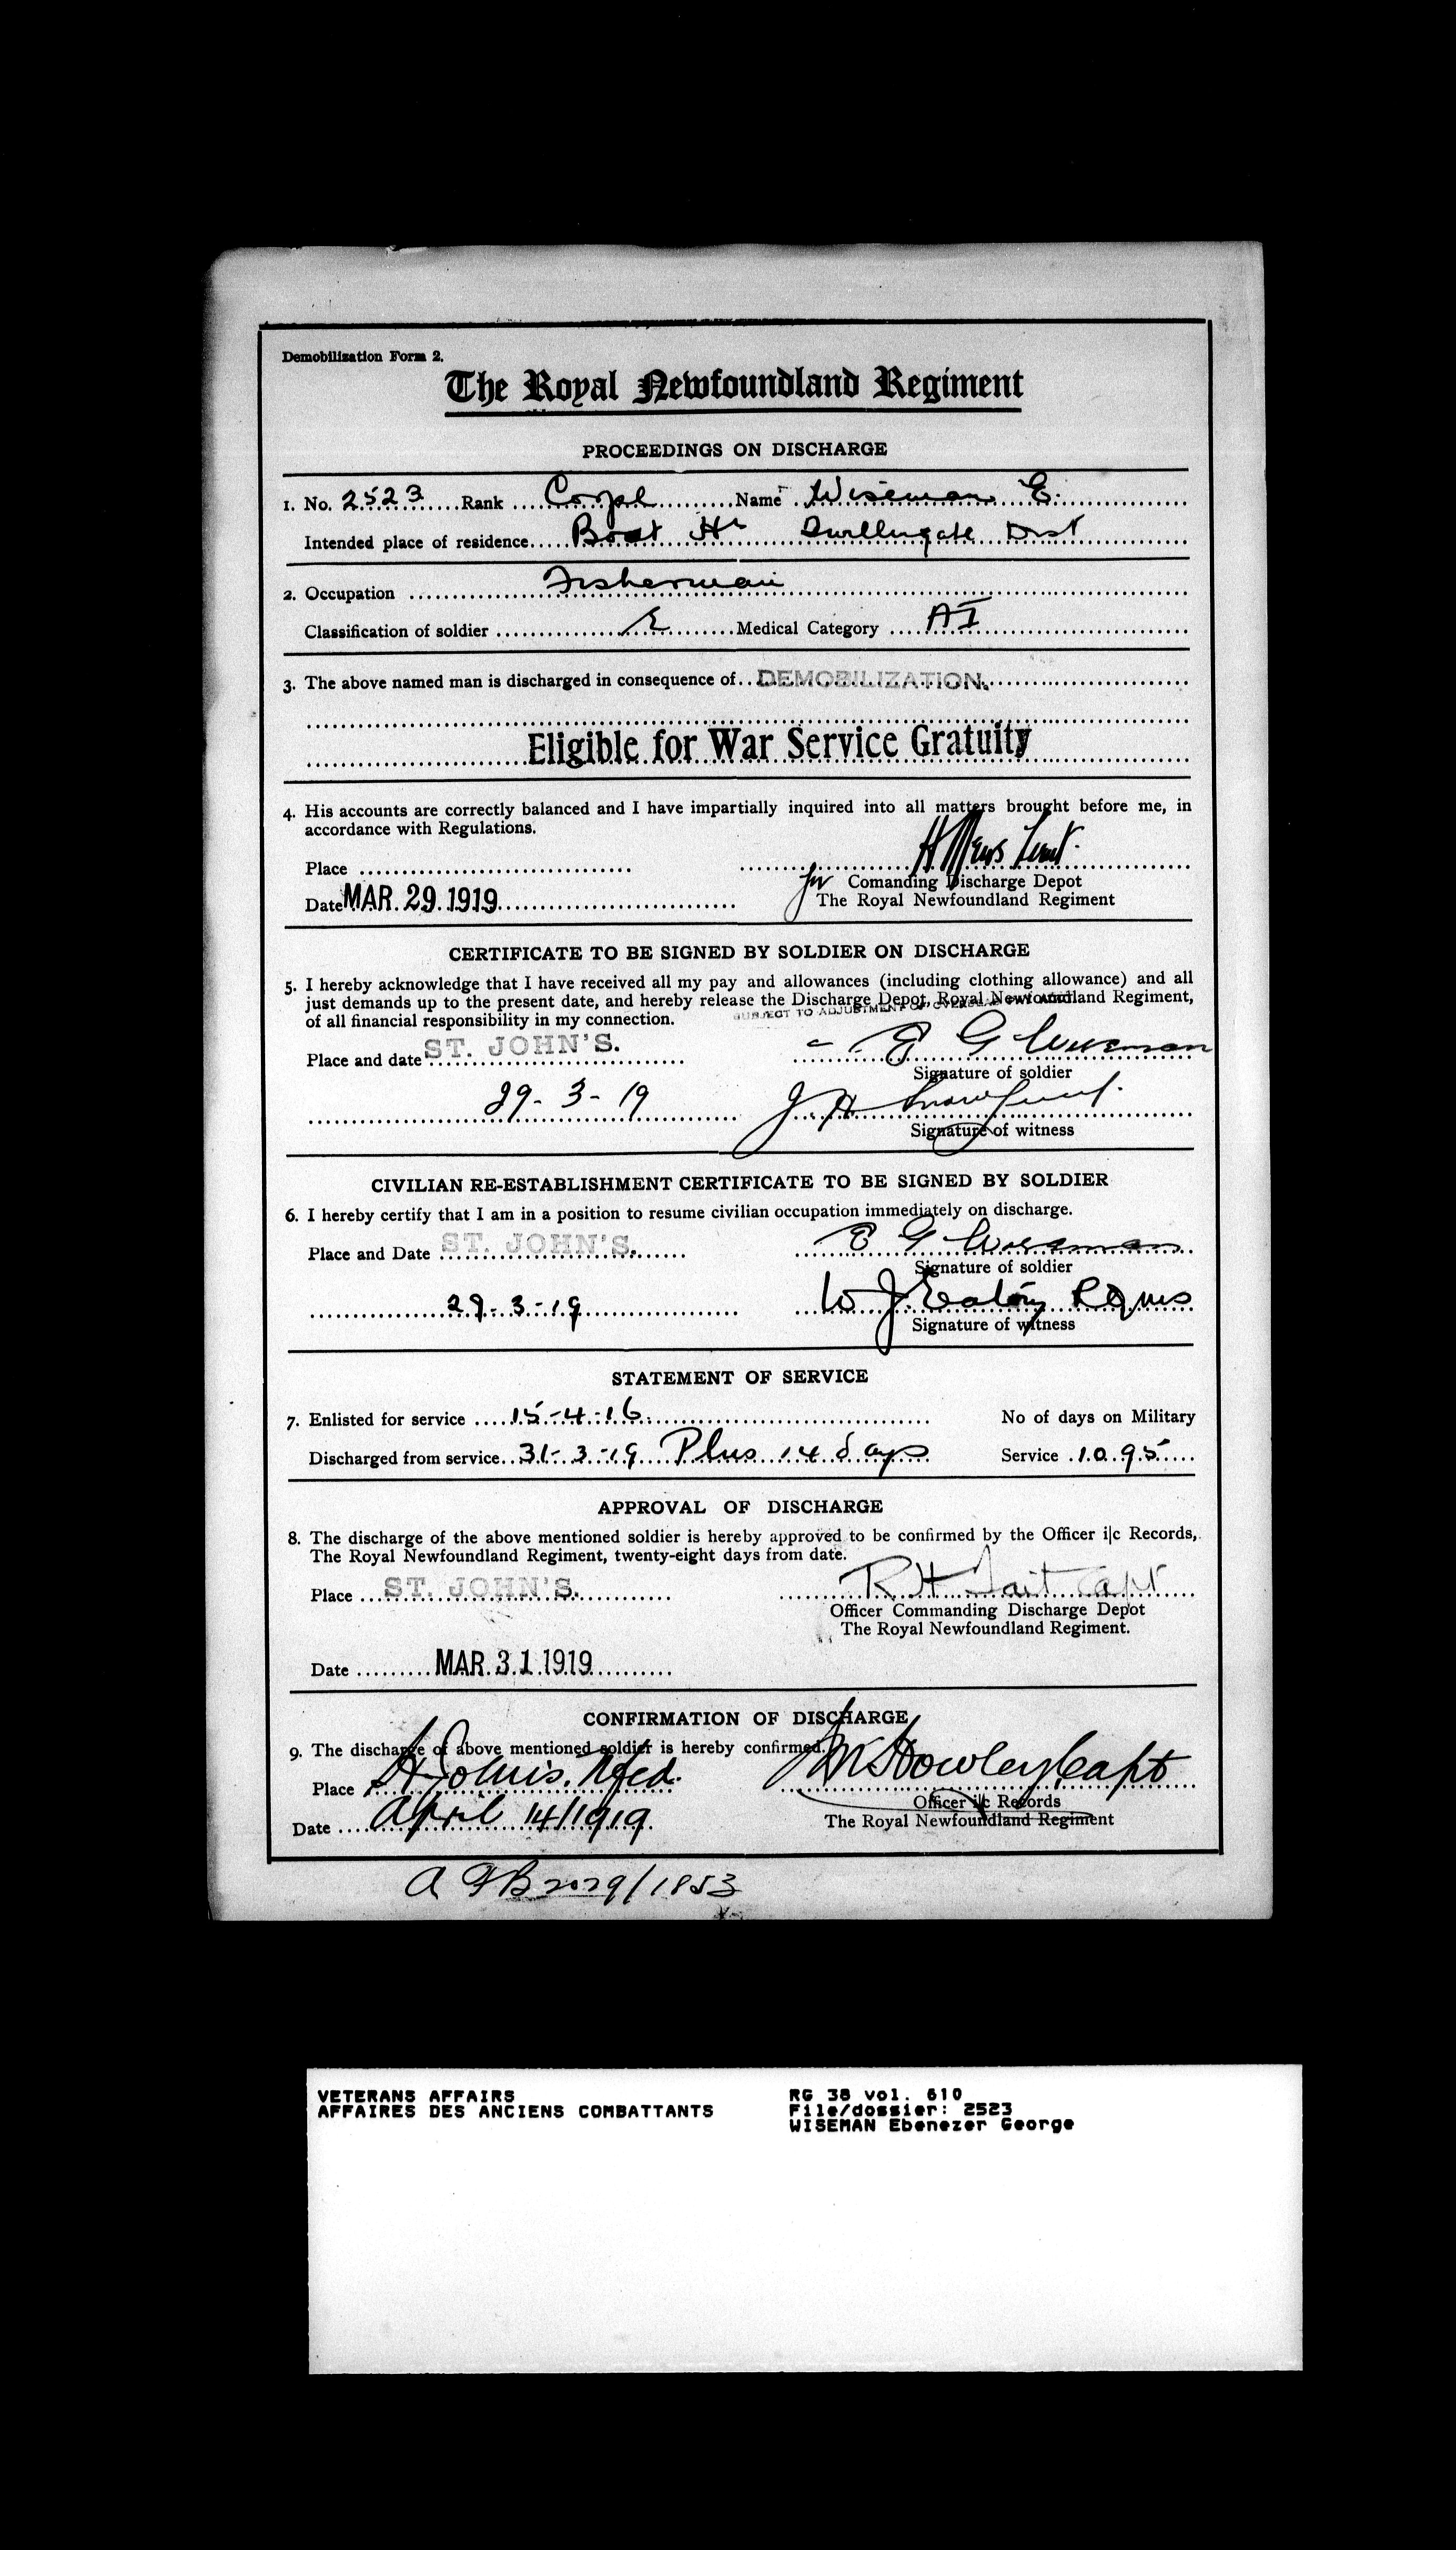 Demobilization Form 2.
The Royal Newfoundland Regiment
PROCEEDINGS ON DISCHARGE
1. No. 2523 Rank Corpl Name Wiseman E.
Intended place of residence Boat Hr Twillingate Dist
2. Occupation Fisherman
Classification of soldier E Medical Category A I
3. The above named man is discharged in consequence of DEMOBILIZATION.
Eligible for War Service Gratuity
4. His accounts are correctly balanced and I have impartially inquired into all matters brought before me, in
accordance with Regulations.
H Mews Lieut.
Place
for Comanding Discharge Depot
Date MAR. 29. 1919 The Royal Newfoundland Regiment
CERTIFICATE TO BE SIGNED BY SOLDIER ON DISCHARGE
5. I hereby acknowledge that I have received all my pay and allowances (including clothing allowance) and all
just demands up to the present date, and hereby release the Discharge Depot, Royal Newfoundland Regiment,
of all financial responsibility in my connection. SUBJECT TO ADJUSTMENT OF OVERSEAS
Place and date ST. JOHN'S. E G Wiseman
Signature of soldier
29-3-19 J H Snow Lieut.
Signature of witness
CIVILIAN RE-ESTABLISHMENT CERTIFICATE TO BE SIGNED BY SOLDIER
6. I hereby certify that I am in a position to resume civilian occupation immediately on discharge.
Place and Date ST. JOHN'S. E G Wiseman
Signature of soldier
29-3-19 W J. Eaton RQMS
Signature of witness
STATEMENT OF SERVICE
7. Enlisted for service 15-4-16. No of days on Military
Discharged from service 31-3-19 Plus 14 days Service 1095
APPROVAL OF DISCHARGE
8. The discharge of the above mentioned soldier is hereby approved to be confirmed by the Officer i|c Records,
The Royal Newfoundland Regiment, twenty-eight days from date.
Place ST. JOHN'S. R H Tait Capt
Officer Commanding Discharge Depot
The Royal Newfoundland Regiment.
Date MAR. 31 1919
CONFIRMATION OF DISCHARGE
9. The discharge of above mentioned soldier is hereby confirmed.
Place St. John's. Nfld. Howley Capt
Officer i|c Records
Date April 14/1919 The Royal Newfoundland Regiment
A F B 2079/1853
VETERANS AFFAIRS RG 38 vol. 610
AFFAIRES DES ANCIENS COMBATTANTS File/dossier: 2523
WISEMAN Ebenezer George